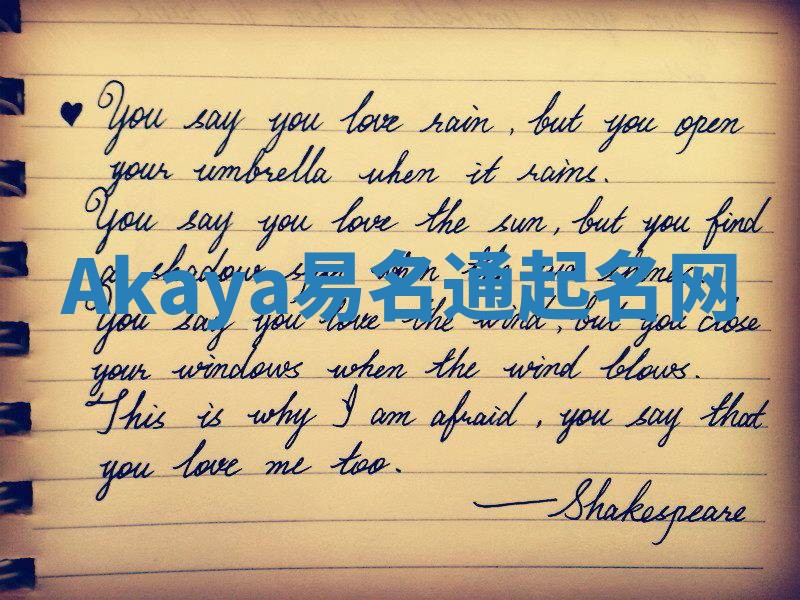 ♥ You say you love rain, but you open
your umbrella when it rains.
You say you love the sun, but you find
a shadow spot when the sun shines.
Akaya易名通起名网
You say you love the wind, but you close
your windows when the wind blows.
This is why I am afraid, you say that
you love me too.
—Shakespeare